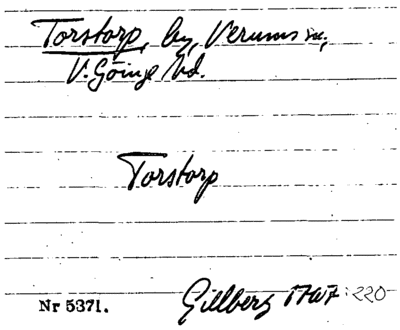 Torstorp, by, Verums sn,
V. Göinge hd.
Torstorp
Gillberg 1767:220
Nr 5371.